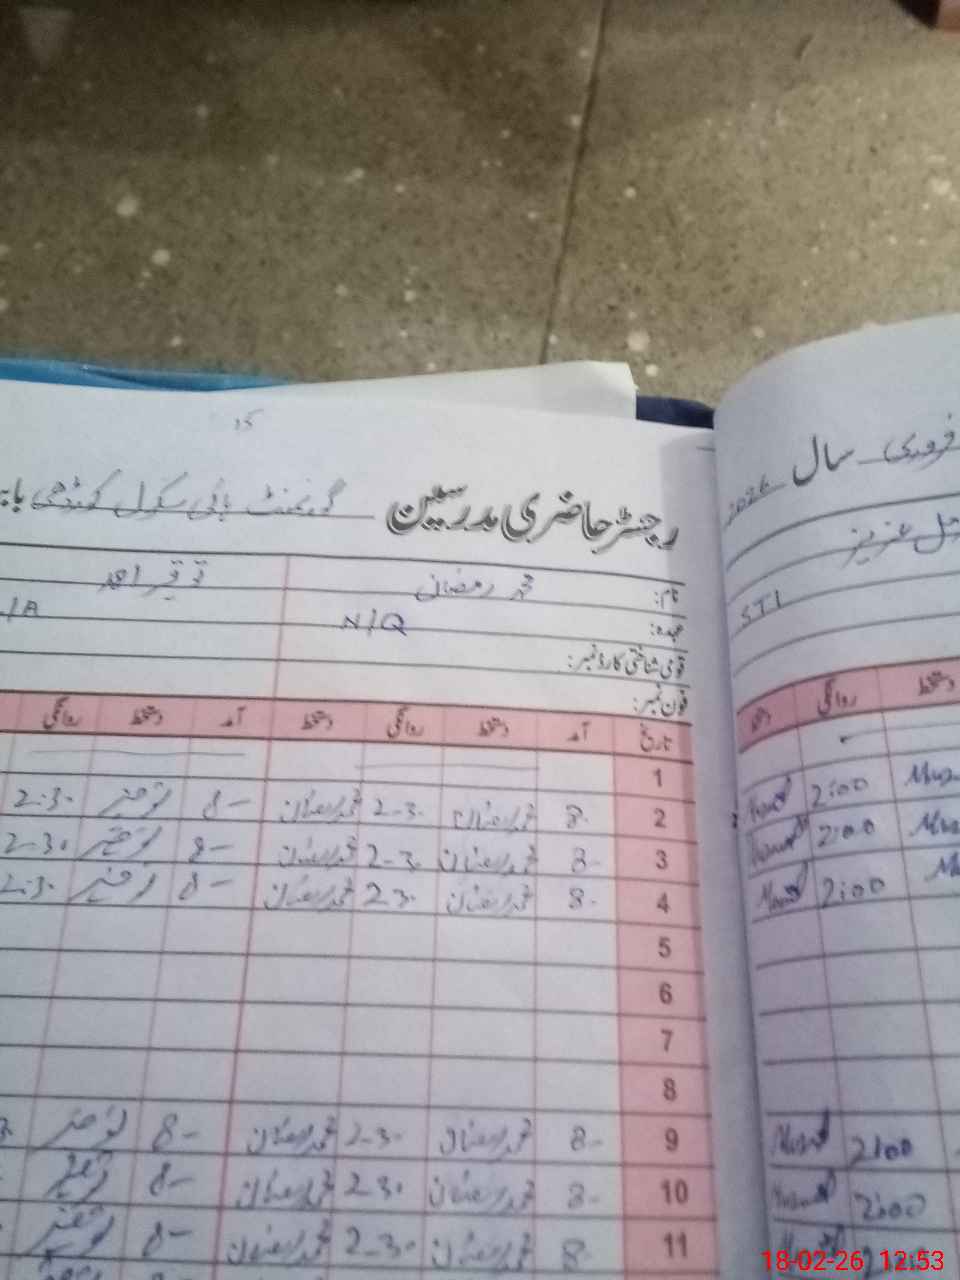 رجسٹر حاضری مدرسین گورنمنٹ ہائی سکول
نام: محمد رمضان توقیر احمد
عہدہ: N/Q /A
قومی شناختی کارڈ نمبر:
فون نمبر:
تاریخ آمد دستخط روانگی دستخط آمد دستخط روانگی
1
2 8- محمد رمضان 2-30 محمد رمضان 8- توقیر 2-30
3 8- محمد رمضان 2-30 محمد رمضان 8- توقیر 2-30
4 8- محمد رمضان 2-30 محمد رمضان 8- توقیر 2-30
5
6
7
8
9 8- محمد رمضان 2-30 محمد رمضان 8- توقیر
10 8- محمد رمضان 2-30 محمد رمضان 8- توقیر
11 8- محمد رمضان 2-30 محمد رمضان 8- توقیر
فروری سال 2026
عزیز
STI
دستخط روانگی
2:00
2:00
2:00
2:00
2:00
18-02-26 12:53